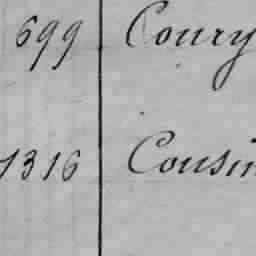 699 Coury
1316 Cousin